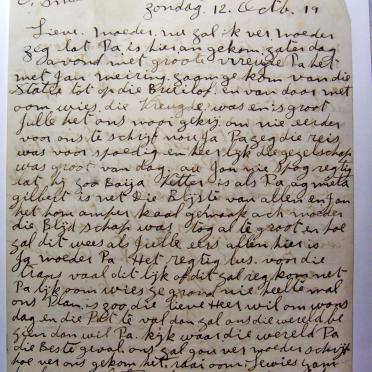 zondag. 12. Octb. 19
Lieve. moeder. nu zal ik ver moeder
zeg dat Pa is hier an gekom. zaterdag
avond met groote vreugde Pa het
met Jan meiring zamge kom van die
States tot op die en van daar met
oom wies. die Vreugde was en is groot
Julle het ons mooi gekry om nie eerder
voor ons te schrijf nou Ja Pa zeg die reis
was voor spoedig en heerlijk die gezelschap
was groot van dag. au Jan nie spog regtig
dat hy zoo Baija Vetter is als Pa
gilbert is net Die Blijste van allen en Jan
het hom amper kaal gemaak ach moeder
die Blijdschap was tog al te groot en hoe
zal dit wees als Julle eers allen hier is
Ja moeder Pa Het regtig lus. voor die
Trans vaal dit lijk of dit zal reg kom met
Pa lijk oom wies ge grond nie heeltemal
ons Plan is zoo die Lieve Heer wil om woens
dag en die Pad te val dan zal ons die wereld be
zien dan wil Pa. kijk waar die wereld Pa
die Beste geval. ons zal gou ver moeder schrijf
hoe ver ons gekom het.